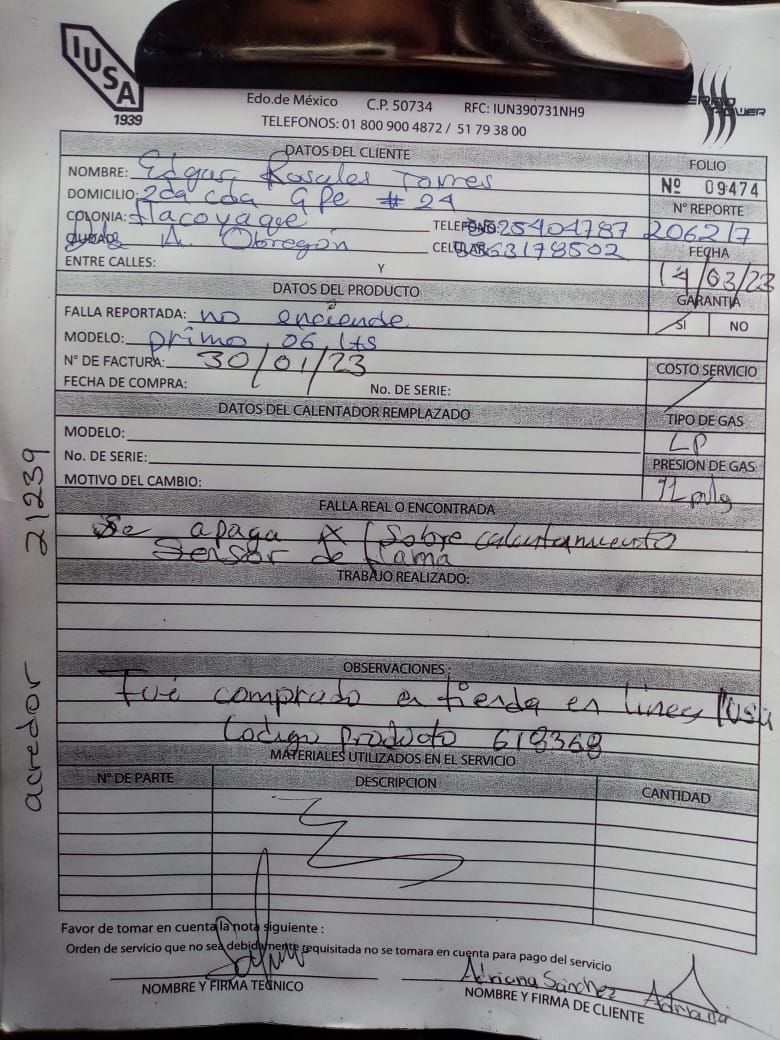 IUSA
1939
POWER
Edo.de México C.P. 50734 RFC: IUN390731NH9
TELEFONOS: 01 800 900 4872 / 51 79 38 00
DATOS DEL CLIENTE
FOLIO
Nº 09474
NOMBRE: Edgar Rosales Torres
DOMICILIO: 2da cda GPe # 24
Nº REPORTE
206217
COLONIA: Tlacoyaque TELEFONO: 5525404787
CIUDAD: A. Obregón CELULAR: 5563178502
FECHA
14/03/23
ENTRE CALLES: Y
DATOS DEL PRODUCTO
GARANTIA
SI NO
FALLA REPORTADA: no enciende
MODELO: primo 06 Lts
Nº DE FACTURA: 30/01/23
COSTO SERVICIO
FECHA DE COMPRA: No. DE SERIE:
DATOS DEL CALENTADOR REMPLAZADO
TIPO DE GAS
LP
MODELO:
No. DE SERIE:
PRESION DE GAS
11 pulg
MOTIVO DEL CAMBIO:
FALLA REAL O ENCONTRADA
Se apaga X Sobre calentamiento
Sensor de flama
TRABAJO REALIZADO:
OBSERVACIONES :
Fué comprado en tienda en linea Iusa
Codigo Producto 618368
MATERIALES UTILIZADOS EN EL SERVICIO
Nº DE PARTE DESCRIPCION CANTIDAD
Favor de tomar en cuenta la nota siguiente :
Orden de servicio que no sea debidamente requisitada no se tomara en cuenta para pago del servicio
NOMBRE Y FIRMA TECNICO
Adriana Sánchez Adriana
NOMBRE Y FIRMA DE CLIENTE
acredor 21239